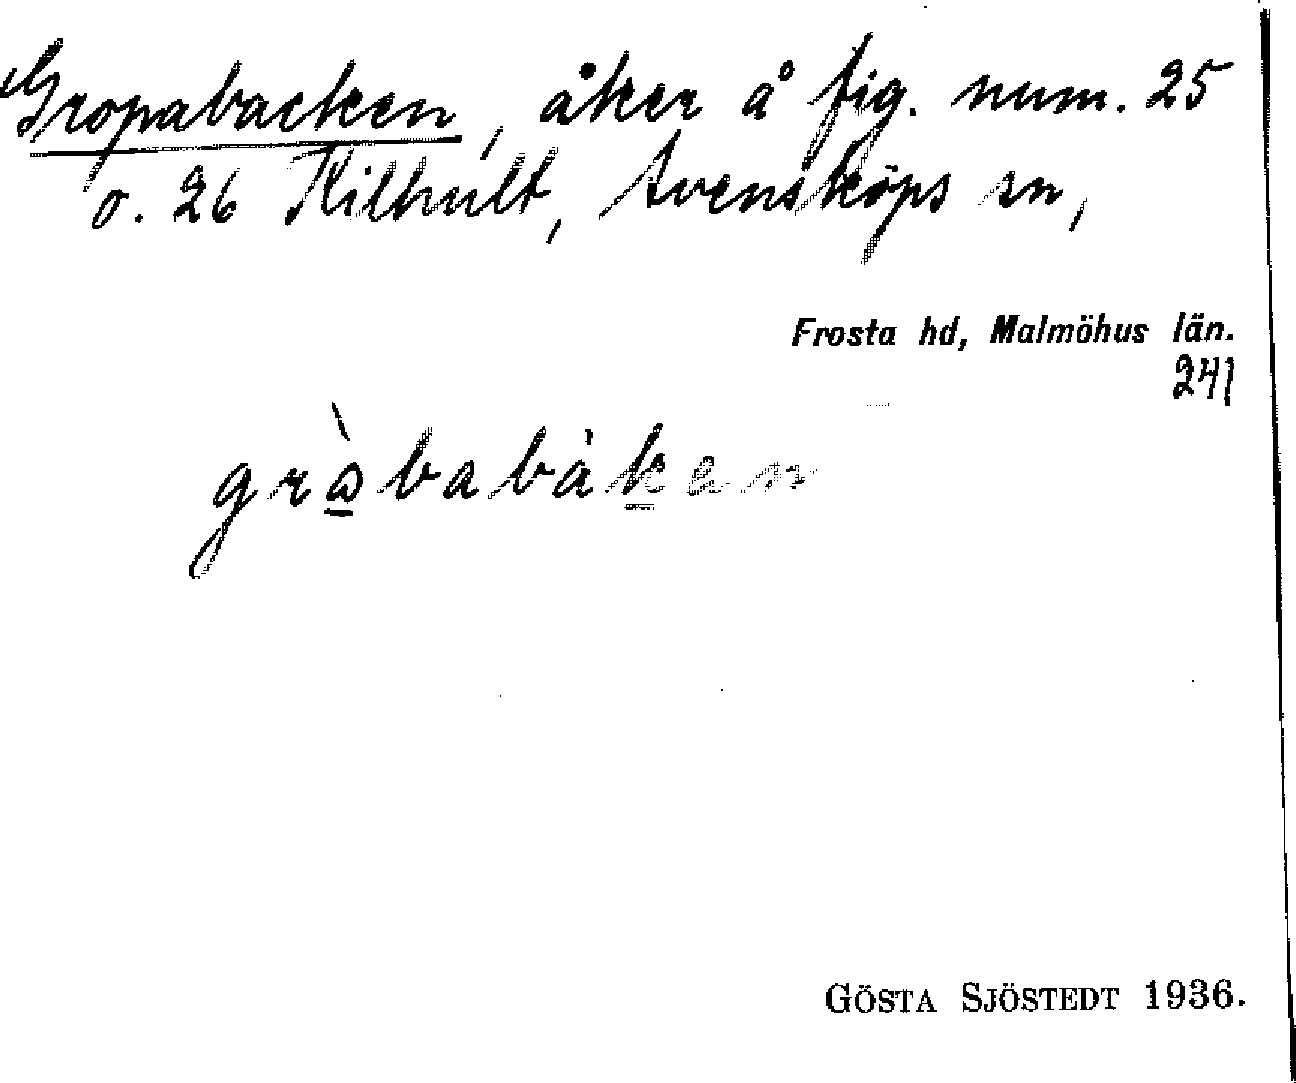 Gropabacken, åker å fig. num. 25
o. 26 Kilhult, Svensköps sn,
Frosta hd, Malmöhus län.
241
gràbabàken
GÖSTA SJÖSTEDT 1936.